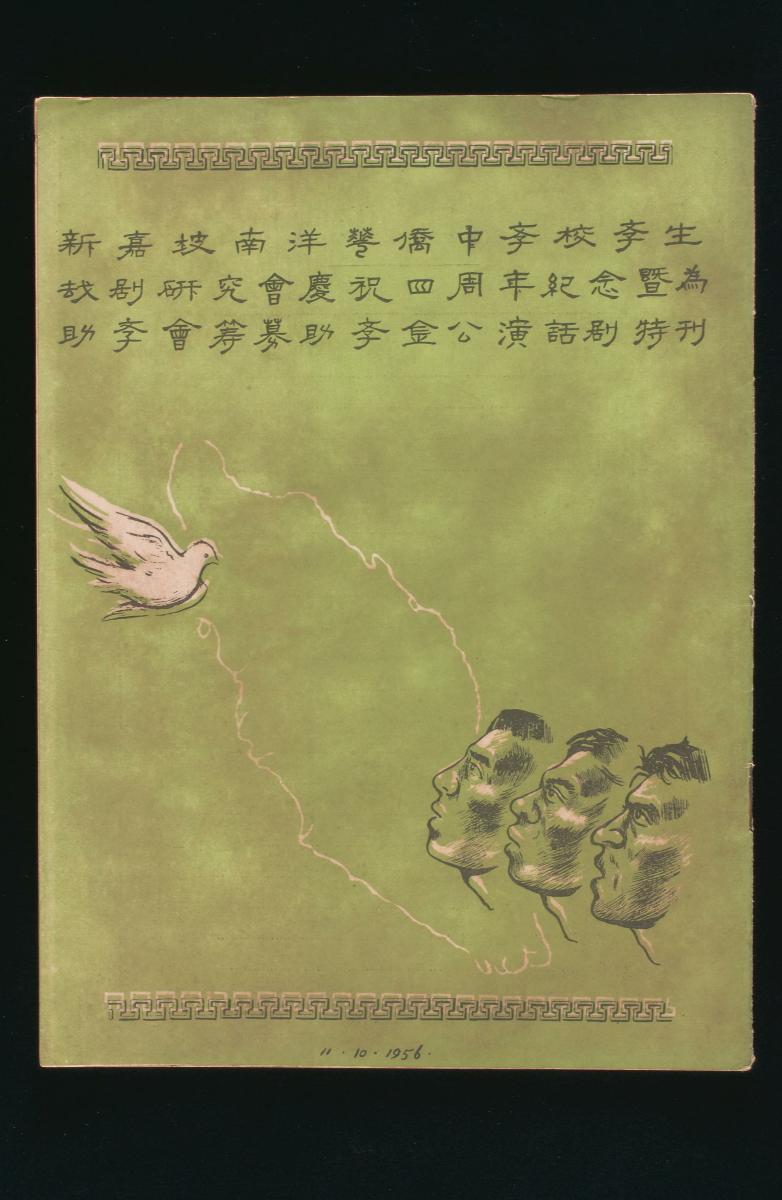 新嘉坡南洋華僑中斈校斈生
戏剧研究會慶祝四周年紀念暨為
助斈會筹募助斈金公演話剧特刊
11 · 10 · 1956 ·